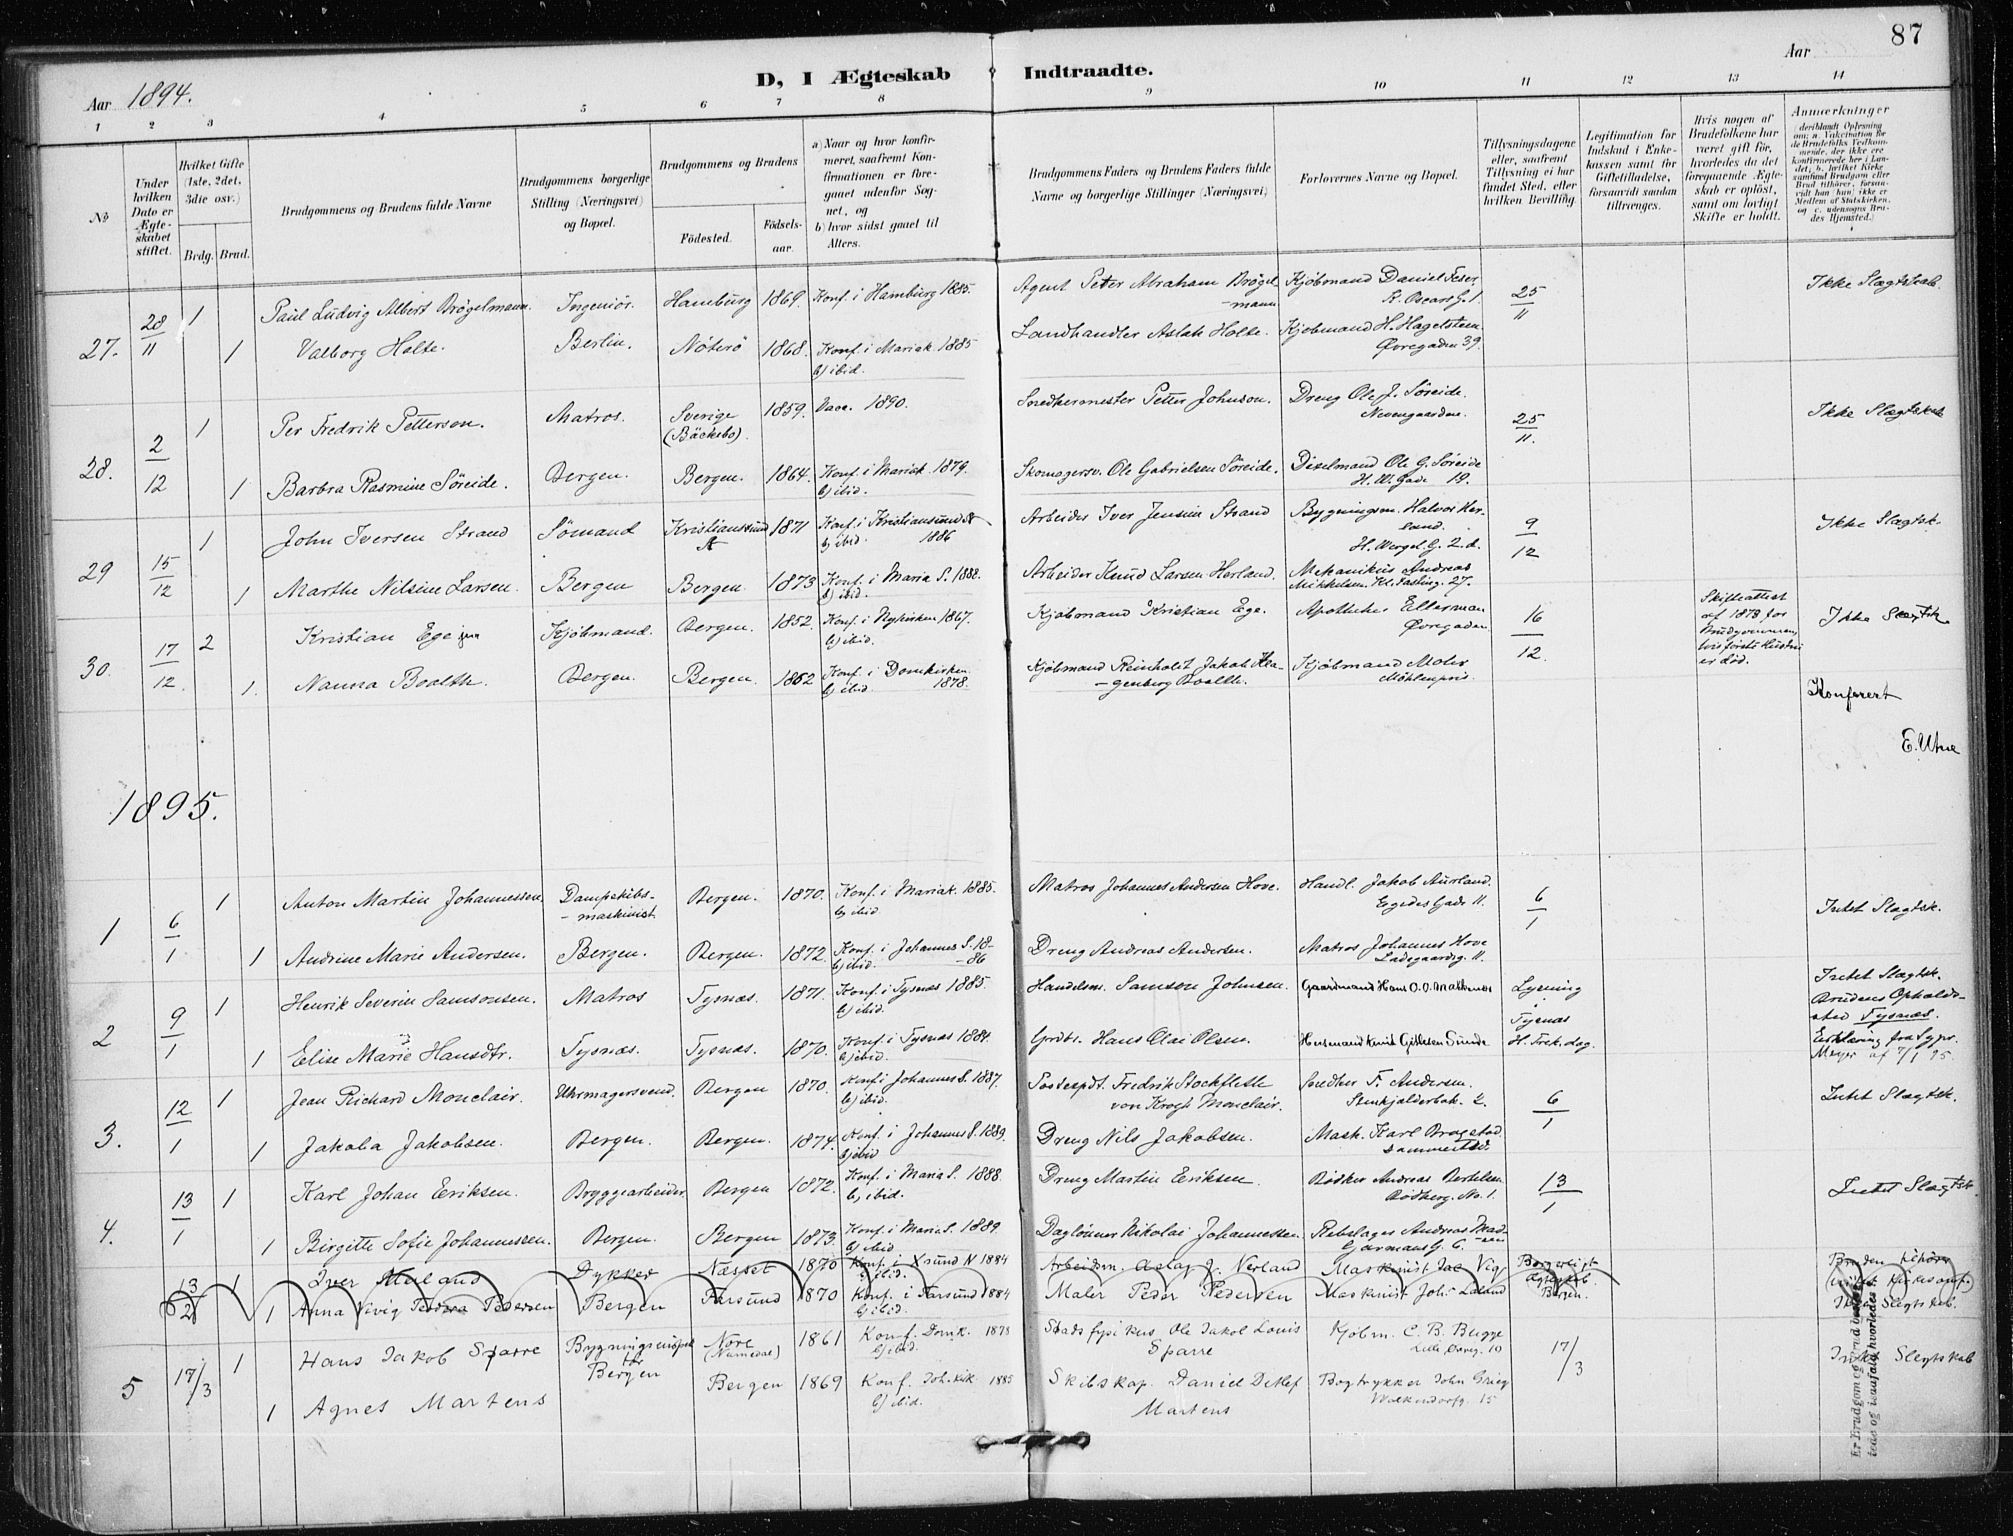 87
D, I Ægteskab Indtraadte.
Aar 1894.
Aar
1 2 3 4 5 6 7 8 9 10 11 12 13 14
No
Under hvilken Dato er Ægteskabet stiftet.
Hvilket Gifte (1ste, 2det, 3die osv.)
Brdg. Brud.
Brudgommens og Brudens fulde Navne
Brudgommens borgerlige Stilling (Næringsvei) og Bopæl.
Brudgommens og Brudens
Födested.
Födselsaar.
a) Naar og hvor konfirmeret, saafremt Konfirmationen er foregaaet udenfor Sognet, og
b) hvor sidst gaaet til Alters.
Brudgommens Faders og Brudens Faders fulde Navne og borgerlige Stillinger (Næringsvei)
Forlovernes Navne og Bopæl.
Tillysningsdagene eller, saafremt Tillysning ei har fundet Sted, efter hvilken Bevilling.
Legitimation for Indskud i Enkekassen samt for Giftetilladelse, forsaavidt saadan tiltrænges.
Hvis nogen af Brudefolkene har været gift før, hvorledes da det foregaaende Ægteskab er opløst, samt om lovligt Skifte er holdt.
Anmærkninger
(deriblandt Oplysning om: a. Vakcination for de Brudefolks Vedkommende, der ikke ere konfirmerede her i Landet; b. hvilket Kirkesamfund Brudgom eller Brud tilhører, forsaavidt han (hun) ikke er Medlem af Statskirken, og c. udensogns Brudes Hjemsted.)
27. 28/11 1 Paul Ludvig Albert Brögelmann. Ingeniör. Hamburg 1869. Konf. i Hamburg 1885. Agent Petter Abraham Brögelmann Kjöbmand Daniel Feser, K. Oscars G. 1 25/11 Ikke Slægtskab.
1 Valborg Holte. Berlin. Nöterö 1868. Konf. i Mariak. 1885 b) ibid. Landhandler Aslak Holte. Kjöbmand H. Hagelsteen. Övregaden 39.
28. 2/12 1 Per Fredrik Petterson. Matros. Sverige (Bäckebo). 1859. Vacc. 1890. Snedkermester Petter Johnson. Dreng Ole J. Söreide. Nevengaarden. 25/11. Ikke Slægtskab
1 Barbra Rasmine Söreide. Bergen. Bergen. 1864. Konf. i Mariak. 1879. b) ibid. Skomagersv. Ole Gabrielsen Söreide. Diselmand Ole G. Söreide H. W. Gade 19.
29 15/12 1 John Iversen Strand Sömand Kristianssund N 1871 Konf. i Kristiansund N b) ibid. 1886 Arbeider Iver Jensen Strand Bygningsm. Halvor Herland. H. Wergel. G. 2. d. 9/12 Ikke Slægtsk.
1 Marthe Nilsine Larsen. Bergen Bergen. 1873 Konf. i Maria S. 1888. b) ibid. Arbeider Knud Larsen Herland. Mekanikus Andreas Mikkelsen. Kl. Fasting. 27.
30. 17/12. 2 Kristian Ege jun Kjöbmand. Bergen. 1852. Konf. i Nykirken 1867. b) ibid. Kjöbmand Kristian Ege. Apotheker Ellerman Övregaden. 16/12. Skifteattest af 1878 for Brudgommen, hvis förste Hustru er död. Ikke Slægtsk.
1. Nanna Boalth. Bergen. Bergen. 1862 Konf. i Domkirken b) ibid. 1878. Kjöbmand Reinholdt Jakob Hagenberg Boalth. Kjöbmand Mohr Möhlenpris.
Konfereret
E. Utne
1895.
1 6/1 1 Anton Martin Johannessen. Dampskibsmaskinist Bergen. 1870. Konf. i Mariak. 1885. b) ibid. Matros Johannes Andersen Hove. Handl. Jakob Aurland. Egedes Gade 11. 6/1 Intet Slægtsk.
1 Andrine Marie Andersen. Bergen. Bergen. 1872. Konf. i Johannes S. 1886 b) ibid. Dreng Andreas Andersen. Matros Johannes Hove Ladegaardsg. 11.
2 9/1 1 Henrik Severin Samsonsen. Matros Tysnæs. 1871. Konf. i Tysnæs 1885 b) ibid. Handelsm. Samson Johnsen. Gaardmand Hans O. O. Malkenes Lysning i Tysnæs H. Trek. dag. Intet Slægtsk. Brudens Opholdssted Tysnæs. Erklæring fra Sgpr. Meyer af 7/1 95
1 Elise Marie Hansdtr. Tysnæs. Tysnæs. 1870. Konf. i Tysnæs 1884. b) ibid. Grdbr. Hans Olai Olsen. Husmand Knut Gitlesen Sunde
3. 12/1 1 Jean Richard Monclair. Uhrmagersvend. Bergen 1870. Konf. i Johannes S. 1887. b) ibid. Postexpdt. Fredrik Stockfleth von Krogh Monclair. Snedker F. Andersen. Stenkjælderbak. 2. 6/1 Intet Slægtsk.
1 Jakoba Jakobsen. Bergen. Bergen. 1874. Konf. i Johannes S. 1889. b) ibid Dreng Nils Jakobsen. Mask. Karl Brogstad Dammersted.
4. 13/1 1 Karl Johan Eriksen. Bryggearbeider. Bergen 1872. Konf. i Maria S. 1888. b) ibid. Dreng Martin Eriksen. Bødker Andreas Bertelsen. Rödberg. No. 1. 13/1 Intet Slægtsk.
1 Birgitte Sofie Johannessen. Bergen. Bergen 1873. Konf. i Maria S. 1889. b) ibid Daglönner Nikolai Johannessen. Rebslager Andreas Madsen Gjørmans G. 6.
13/2 1 Iver Dykker Næsset 1870 Konf. i Xsund N 1884 b) ibid. Arbeidsm. Aslag J. Nerland Maskinist Jac Vig Borgerligt Ægteskab. Bergen. Bruden tilhører
1 Anna Vivig Pedersen Bergen Farsund 1870 Konf. i Farsund 1884 b) ibid. Maler Peder Pedersen Maskinist Joh. Intet Slegtskab.
5 17/3 1 Hans Jakob Sparre Bygningsinspektör Bergen Nore (Numedal) 1861 Konf. Domk. 1878 b) ibid. Stadsfysikus Ole Jakob Louis Sparre Kjöbm. C. B. Bugge Lille Øvreg. 10 17/3 Intet Slegtskab
1 Agnes Martens Bergen 1869 Konf. Joh.kirk. 1885 b) ibid. Skibskap. Daniel Detlef Martens Bogtrykker John Grieg Walkendorfsg. 15
Er Brudgom og Brud beslægtede og i saafald hvorledes